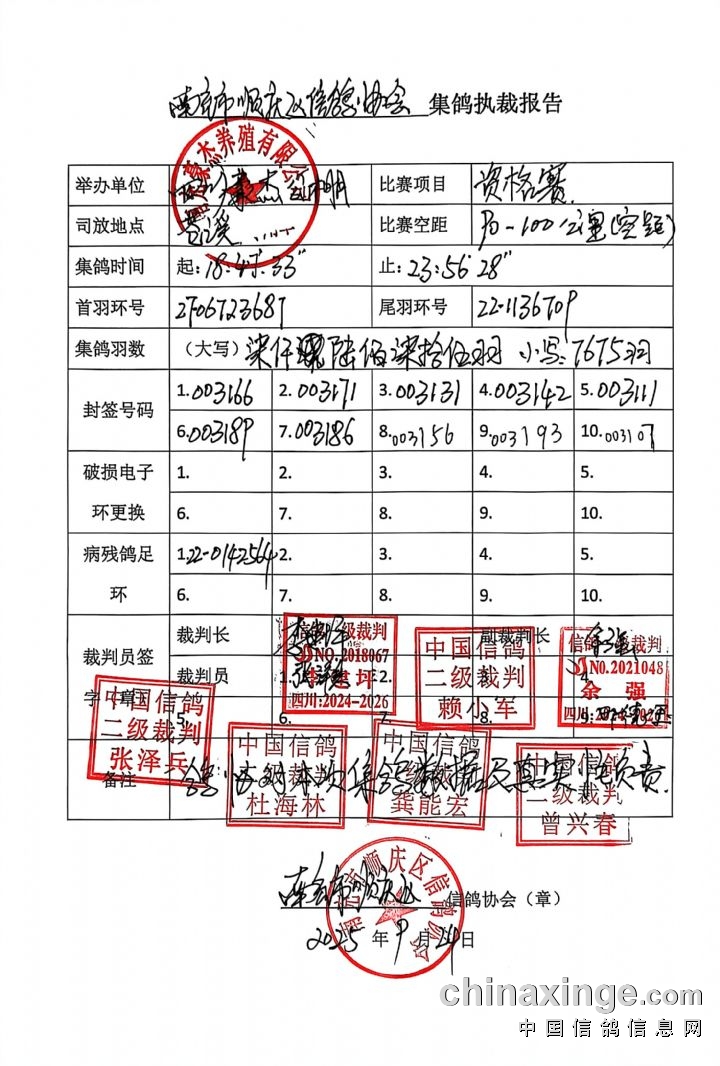 南充市顺庆区信鸽协会 集鸽执裁报告
举办单位 豪杰 比赛项目 资格赛
司放地点 比赛空距 70-100公里(空距)
集鸽时间 起: 18:45:33" 止: 23:56 28"
首羽环号 尾羽环号 22-1136709
集鸽羽数 (大写) 柒仟陆佰柒拾伍羽 小写: 7675羽
封签号码 1.003166 2.003171 3.003131 4.003142 5.003111
6.003189 7.003186 8.003156 9.003193 10.003107
破损电子环更换 1. 2. 3. 4. 5.
6. 7. 8. 9. 10.
病残鸽足环 1.22-0142564 2. 3. 4. 5.
6. 7. 8. 9. 10.
裁判员签字(章) 裁判长 副裁判长 余强
裁判员 1. 2. 4.
5. 6. 7. 8. 9.
备注 鸽协对本次集鸽数据及真实性负责.
豪杰养殖有限公
级裁判
NO.2018067
李建坪
四川:2024-2026
中国信鸽
二级裁判
赖小军
信鸽 裁判
NO.2021048
余 强
中国信鸽
二级裁判
张泽兵
中国信鸽
二级裁判
杜海林
中国信鸽
二级裁判
龚能宏
中国信鸽
二级裁判
曾兴春
南充市顺庆区 信鸽协会(章)
南充市顺庆区信鸽协会
2025 年 9 月 24 日
chinaxinge.com
中国信鸽信息网